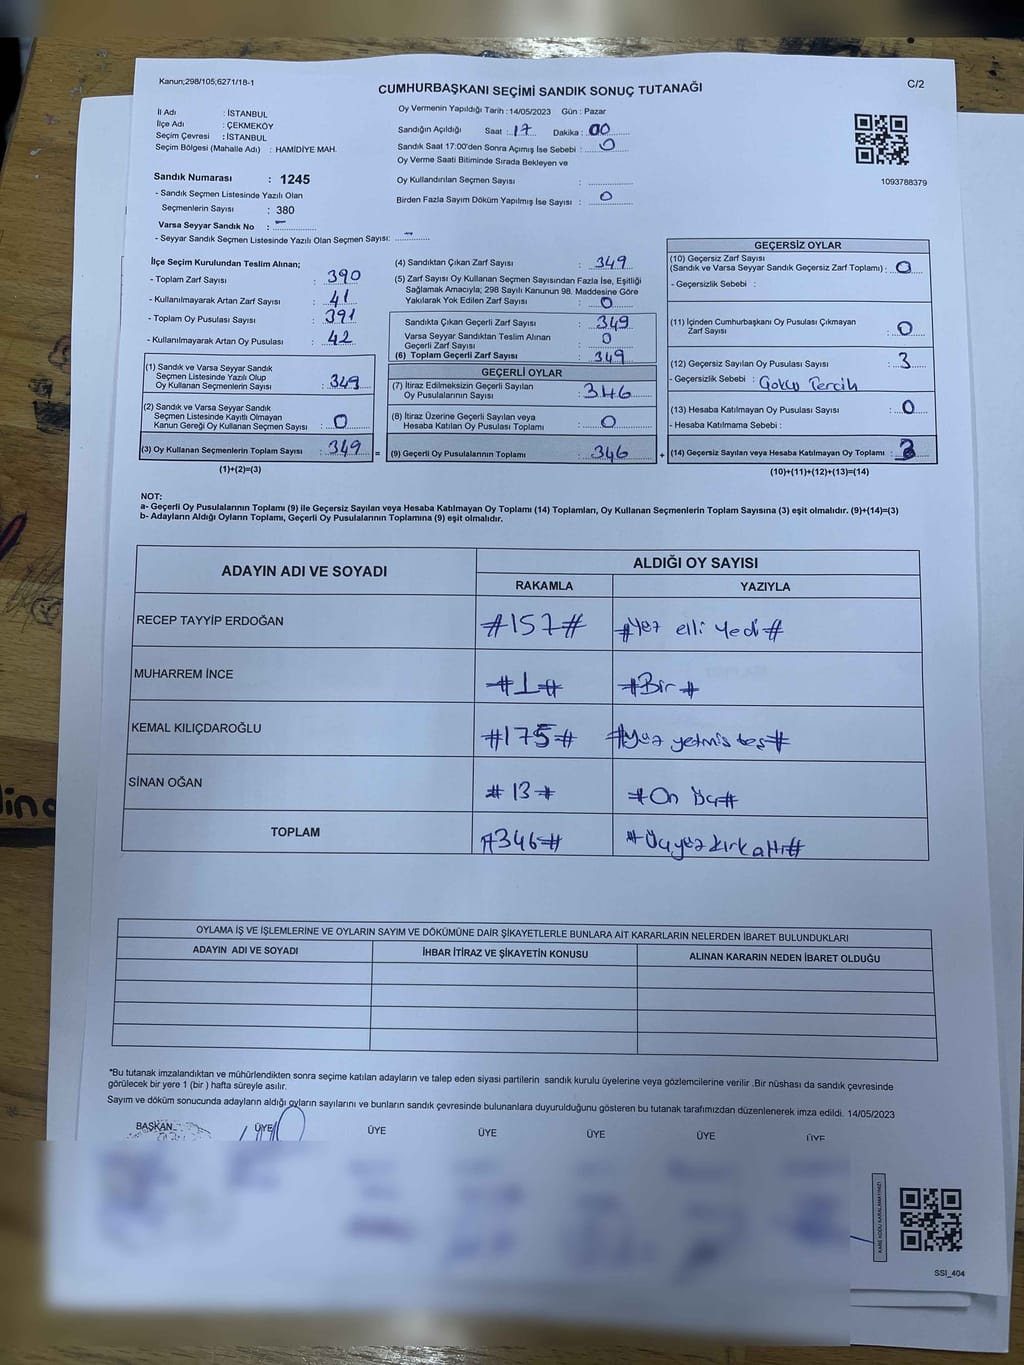 Kanun;298/105;6271/18-1
CUMHURBAŞKANI SEÇİMİ SANDIK SONUÇ TUTANAĞI
C/2
İl Adı : İSTANBUL
İlçe Adı : ÇEKMEKÖY
Seçim Çevresi : İSTANBUL
Seçim Bölgesi (Mahalle Adı) : HAMİDİYE MAH.
Oy Vermenin Yapıldığı Tarih : 14/05/2023 Gün : Pazar
Sandığın Açıldığı Saat : 17 Dakika : 00
Sandık Saat 17:00'den Sonra Açımış İse Sebebi : 0
Oy Verme Saati Bitiminde Sırada Bekleyen ve
Oy Kullandırılan Seçmen Sayısı :
Birden Fazla Sayım Döküm Yapılmış İse Sayısı : 0
1093788379
Sandık Numarası : 1245
- Sandık Seçmen Listesinde Yazılı Olan
Seçmenlerin Sayısı : 380
Varsa Seyyar Sandık No : -
- Seyyar Sandık Seçmen Listesinde Yazılı Olan Seçmen Sayısı: -
İlçe Seçim Kurulundan Teslim Alınan;
- Toplam Zarf Sayısı : 390
- Kullanılmayarak Artan Zarf Sayısı : 41
- Toplam Oy Pusulası Sayısı : 391
- Kullanılmayarak Artan Oy Pusulası : 42
(1) Sandık ve Varsa Seyyar Sandık
Seçmen Listesinde Yazılı Olup
Oy Kullanan Seçmenlerin Sayısı : 349
(2) Sandık ve Varsa Seyyar Sandık
Seçmen Listesinde Kayıtlı Olmayan
Kanun Gereği Oy Kullanan Seçmen Sayısı : 0
(3) Oy Kullanan Seçmenlerin Toplam Sayısı : 349 =
(1)+(2)=(3)
(4) Sandıktan Çıkan Zarf Sayısı : 349
(5) Zarf Sayısı Oy Kullanan Seçmen Sayısından Fazla İse, Eşitliği
Sağlamak Amacıyla; 298 Sayılı Kanunun 98. Maddesine Göre
Yakılarak Yok Edilen Zarf Sayısı : 0
Sandıkta Çıkan Geçerli Zarf Sayısı : 349
Varsa Seyyar Sandıktan Teslim Alınan
Geçerli Zarf Sayısı : 0
(6) Toplam Geçerli Zarf Sayısı : 349
GEÇERLİ OYLAR
(7) İtiraz Edilmeksizin Geçerli Sayılan
Oy Pusulalarının Sayısı : 346
(8) İtiraz Üzerine Geçerli Sayılan veya
Hesaba Katılan Oy Pusulası Toplamı : 0
(9) Geçerli Oy Pusulalarının Toplamı : 346 +
GEÇERSİZ OYLAR
(10) Geçersiz Zarf Sayısı
(Sandık ve Varsa Seyyar Sandık Geçersiz Zarf Toplamı) : 0
- Geçersizlik Sebebi :
(11) İçinden Cumhurbaşkanı Oy Pusulası Çıkmayan
Zarf Sayısı : 0
(12) Geçersiz Sayılan Oy Pusulası Sayısı : 3
- Geçersizlik Sebebi : Çoklu Tercih
(13) Hesaba Katılmayan Oy Pusulası Sayısı : 0
- Hesaba Katılmama Sebebi :
(14) Geçersiz Sayılan veya Hesaba Katılmayan Oy Toplamı : 3
(10)+(11)+(12)+(13)=(14)
NOT:
a- Geçerli Oy Pusulalarının Toplamı (9) ile Geçersiz Sayılan veya Hesaba Katılmayan Oy Toplamı (14) Toplamları, Oy Kullanan Seçmenlerin Toplam Sayısına (3) eşit olmalıdır. (9)+(14)=(3)
b- Adayların Aldığı Oyların Toplamı, Geçerli Oy Pusulalarının Toplamına (9) eşit olmalıdır.
ADAYIN ADI VE SOYADI
ALDIĞI OY SAYISI
RAKAMLA YAZIYLA
RECEP TAYYİP ERDOĞAN #157# #Yüz elli Yedi#
MUHARREM İNCE #1# #Bir#
KEMAL KILIÇDAROĞLU #175# #Yüz yetmiş beş#
SİNAN OĞAN #13# #On Üç#
TOPLAM #346# #Üçyüz kırk altı#
OYLAMA İŞ VE İŞLEMLERİNE VE OYLARIN SAYIM VE DÖKÜMÜNE DAİR ŞİKAYETLERLE BUNLARA AİT KARARLARIN NELERDEN İBARET BULUNDUKLARI
ADAYIN ADI VE SOYADI İHBAR İTİRAZ VE ŞİKAYETİN KONUSU ALINAN KARARIN NEDEN İBARET OLDUĞU
*Bu tutanak imzalandıktan ve mühürlendikten sonra seçime katılan adayların ve talep eden siyasi partilerin sandık kurulu üyelerine veya gözlemcilerine verilir .Bir nüshası da sandık çevresinde
görülecek bir yere 1 (bir ) hafta süreyle asılır.
Sayım ve döküm sonucunda adayların aldığı oyların sayılarını ve bunların sandık çevresinde bulunanlara duyurulduğunu gösteren bu tutanak tarafımızdan düzenlenerek imza edildi. 14/05/2023
BAŞKAN ÜYE ÜYE ÜYE ÜYE ÜYE ÜYE
KARE KODU KARALAMAYINIZ!
SSI_404